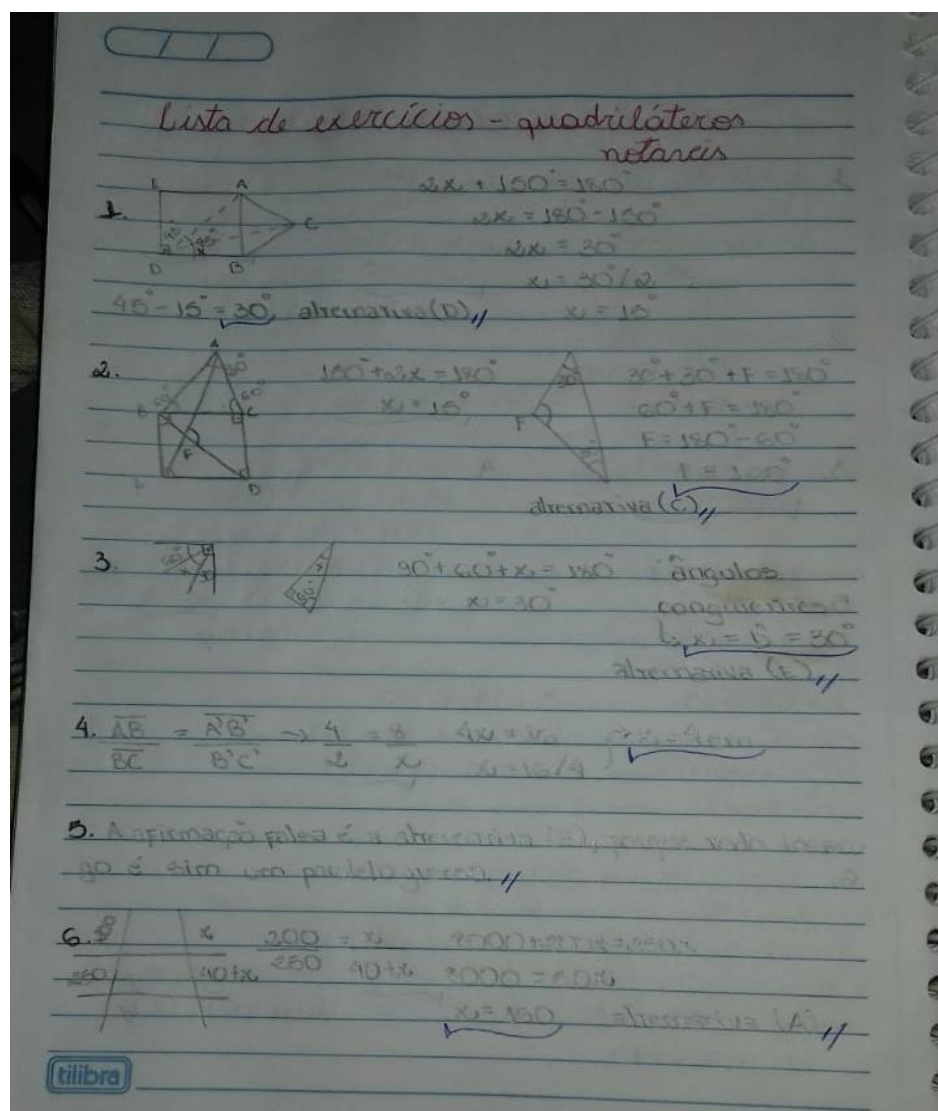 Lista de exercícios - quadriláteros
notáveis
1. E A C D B 45° x
2x + 150° = 180°
2x = 180° - 150°
2x = 30°
x = 30°/2
x = 15°
45° - 15° = 30° alternativa (D)
2. A 60° 60° 60° B C F E D
150° + 2x = 180°
x = 15°
30° F
30° + 30° + F = 180°
60° + F = 180°
F = 180° - 60°
F = 120°
alternativa (C)
3. 60° x 30 60° x
90° + 60° + x = 180°
x = 30°
ângulos
congruentes
x = B = 30°
alternativa (E)
4. AB/BC = A'B'/B'C' → 4/2 = 8/x 4x = 16 x = 16/4 x = 4cm
5. A afirmação falsa é a alternativa porque todo
go é sim um paralelogramo.
6. x 250 40+x
200/250 = x/40+x
8000 = 50x
x = 160 alternativa (A)
tilibra